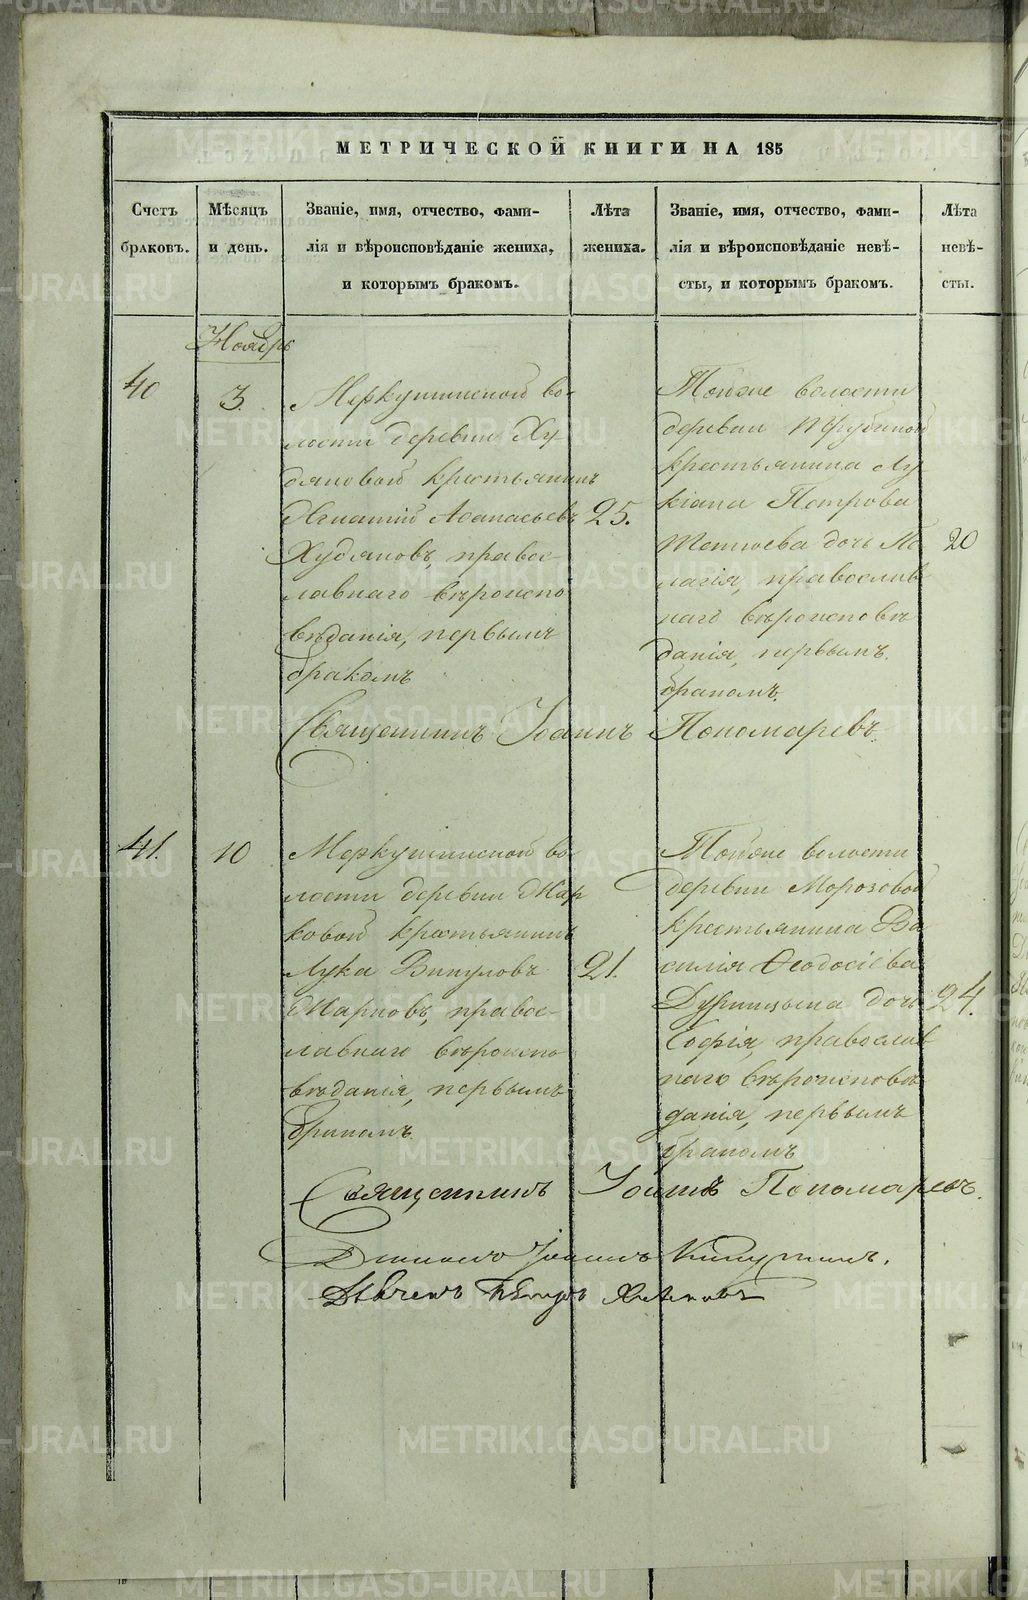 МЕТРИЧЕСКОЙ КНИГИ НА 185
Счетъ браковъ.
Мѣсяцъ и день.
Званіе, имя, отчество, фами-
лія и вѣроисповѣданіе жениха,
и которымъ бракомъ.
Лѣта жениха.
Званіе, имя, отчество, фами-
лія и вѣроисповѣданіе невѣ-
сты, и которымъ бракомъ.
Лѣта невѣ-
сты.
Ноябрь
40
3.
Меркушинской во-
лости деревни Ху
дяковой крестьянинъ
Игнатій Аѳанасьевъ
Худяковъ, правос-
лавнаго вѣроиспо
вѣданія, первымъ
бракомъ
25.
Тойже волости
деревни
крестьянина Лу
кіана Петрова
дочь Пе
лагія, православ
наго вѣроисповѣ
данія, первымъ.
бракомъ.
20
Священникъ Іоаннъ Пономаревъ.
41.
10
Меркушинской во-
лости деревни Мар
ковой крестьянинъ
Лука Викуловъ
Марковъ, правос-
лавнаго вѣроиспо
вѣданія, первымъ
бракомъ.
21.
Тойже волости
деревни Морозовой
крестьянина Ва
силія Ѳеодосіева
Дурницына дочь
Софія, православ
наго вѣроисповѣ
данія, первымъ
бракомъ
24.
Священникъ Іоаннъ Пономаревъ.
Діаконъ Іоаннъ
Дьячекъ Петръ
METRIKI.GASO-URAL.RU